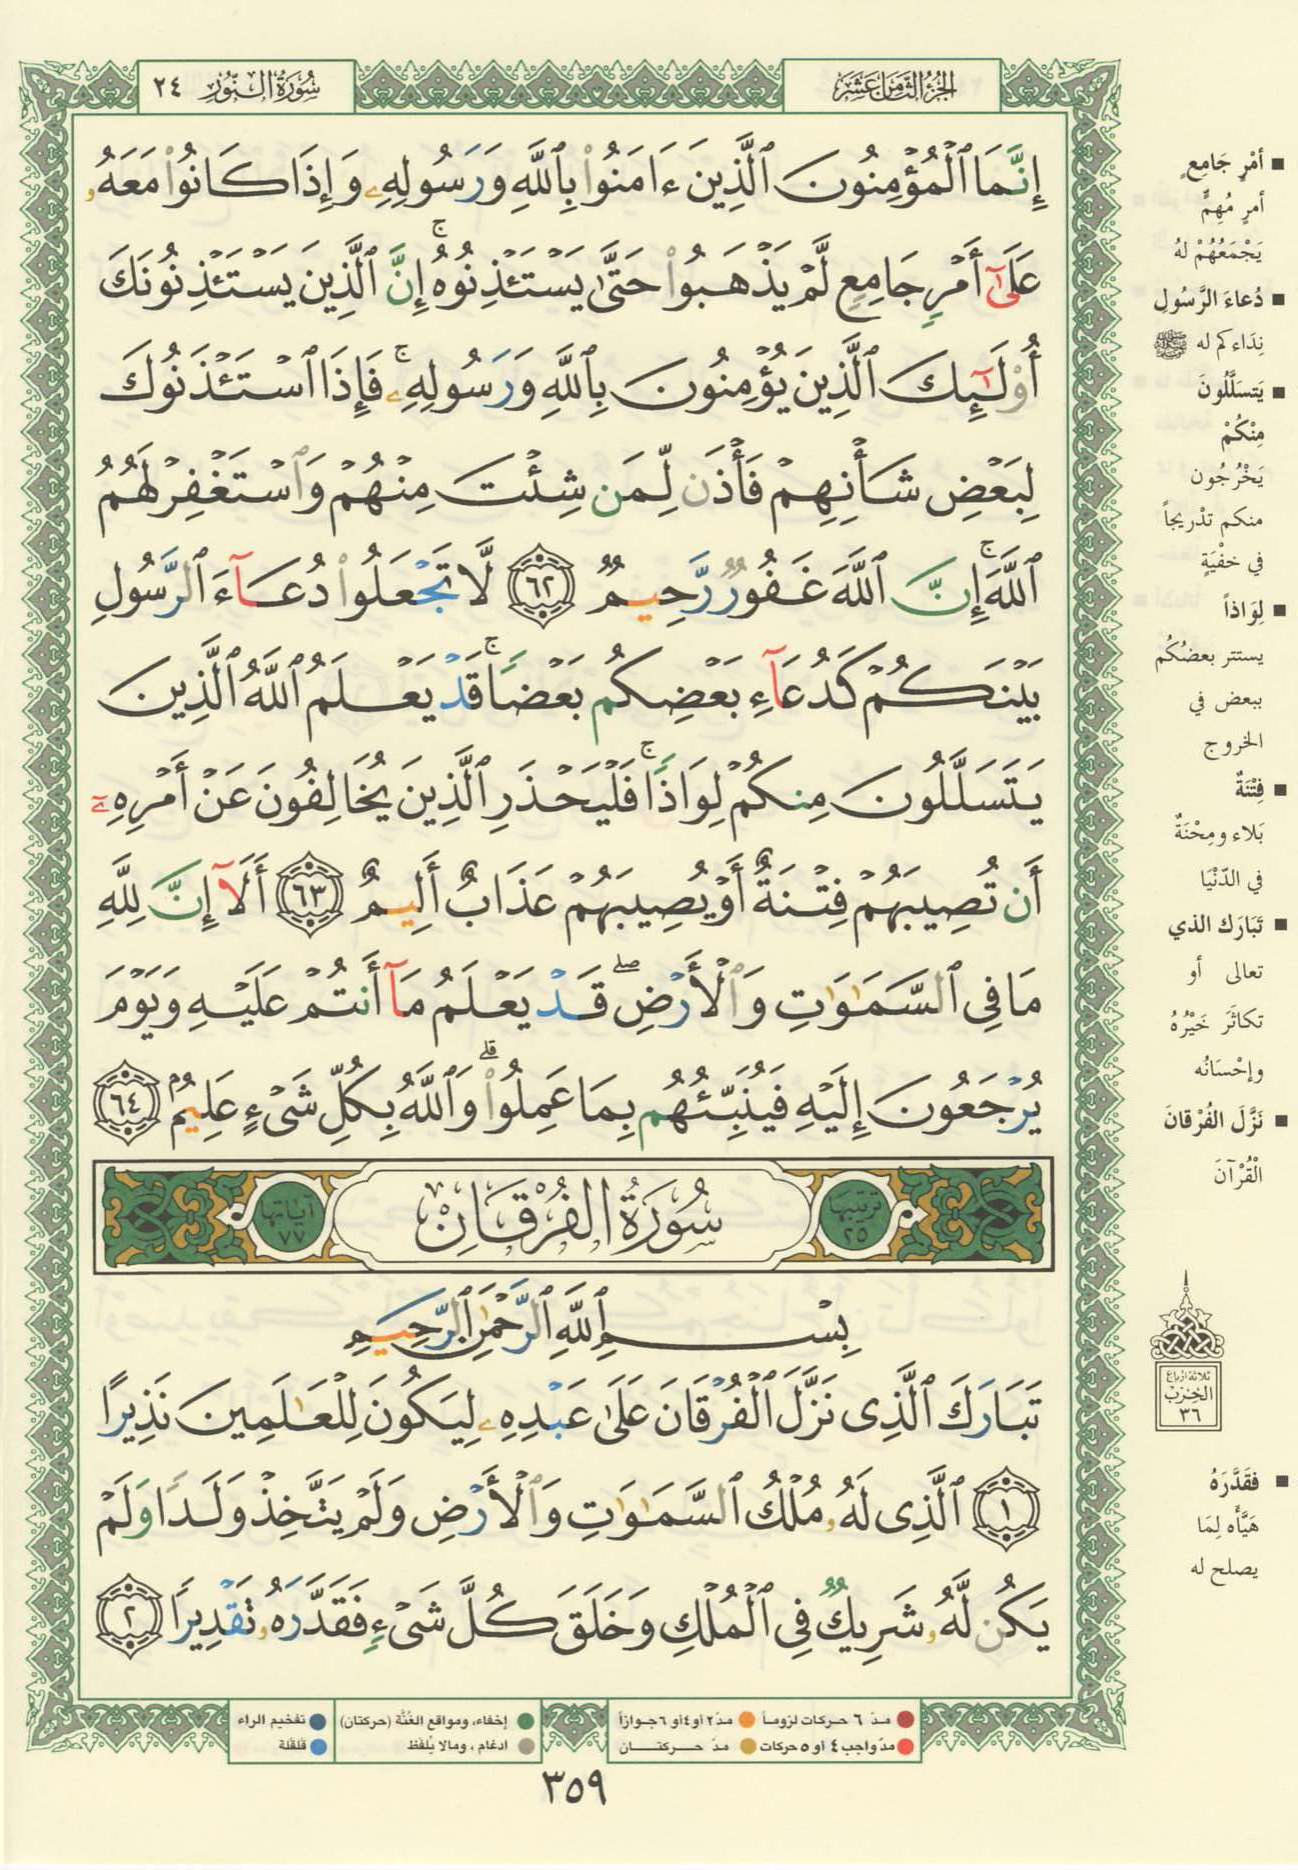 الجزء الثامن عشر
سورة النور ٢٤
إِنَّمَا ٱلْمُؤْمِنُونَ ٱلَّذِينَ ءَامَنُوا۟ بِٱللَّهِ وَرَسُولِهِۦ وَإِذَا كَانُوا۟ مَعَهُۥ
عَلَىٰٓ أَمْرٍ جَامِعٍ لَّمْ يَذْهَبُوا۟ حَتَّىٰ يَسْتَـْٔذِنُوهُ ۚ إِنَّ ٱلَّذِينَ يَسْتَـْٔذِنُونَكَ
أُو۟لَـٰٓئِكَ ٱلَّذِينَ يُؤْمِنُونَ بِٱللَّهِ وَرَسُولِهِۦ ۚ فَإِذَا ٱسْتَـْٔذَنُوكَ
لِبَعْضِ شَأْنِهِمْ فَأْذَن لِّمَن شِئْتَ مِنْهُمْ وَٱسْتَغْفِرْ لَهُمُ
ٱللَّهَ ۚ إِنَّ ٱللَّهَ غَفُورٌ رَّحِيمٌ ٦٢ لَّا تَجْعَلُوا۟ دُعَآءَ ٱلرَّسُولِ
بَيْنَكُمْ كَدُعَآءِ بَعْضِكُم بَعْضًا ۚ قَدْ يَعْلَمُ ٱللَّهُ ٱلَّذِينَ
يَتَسَلَّلُونَ مِنكُمْ لِوَاذًا ۚ فَلْيَحْذَرِ ٱلَّذِينَ يُخَالِفُونَ عَنْ أَمْرِهِۦٓ
أَن تُصِيبَهُمْ فِتْنَةٌ أَوْ يُصِيبَهُمْ عَذَابٌ أَلِيمٌ ٦٣ أَلَآ إِنَّ لِلَّهِ
مَا فِى ٱلسَّمَـٰوَٰتِ وَٱلْأَرْضِ ۖ قَدْ يَعْلَمُ مَآ أَنتُمْ عَلَيْهِ وَيَوْمَ
يُرْجَعُونَ إِلَيْهِ فَيُنَبِّئُهُم بِمَا عَمِلُوا۟ ۗ وَٱللَّهُ بِكُلِّ شَىْءٍ عَلِيمٌۢ ٦٤
ترتيبها ٢٥ سُورَةُ الفُرْقَانِ آياتها ٧٧
بِسْمِ ٱللَّهِ ٱلرَّحْمَـٰنِ ٱلرَّحِيمِ
تَبَارَكَ ٱلَّذِى نَزَّلَ ٱلْفُرْقَانَ عَلَىٰ عَبْدِهِۦ لِيَكُونَ لِلْعَـٰلَمِينَ نَذِيرًا
١ ٱلَّذِى لَهُۥ مُلْكُ ٱلسَّمَـٰوَٰتِ وَٱلْأَرْضِ وَلَمْ يَتَّخِذْ وَلَدًا وَلَمْ
يَكُن لَّهُۥ شَرِيكٌ فِى ٱلْمُلْكِ وَخَلَقَ كُلَّ شَىْءٍ فَقَدَّرَهُۥ تَقْدِيرًا ٢
أمْرٍ جَامِعٍ
أمرٍ مُهِمٍّ
يَجْمَعُهُمْ لهُ
دُعاءَ الرَّسُولِ
نِدَاءكم له ﷺ
يَتسَلَّلُونَ
مِنْكُمْ
يَخْرُجُون
منكم تدْريجاً
في خفْيَةٍ
لِوَاذاً
يستتر بعضُكُم
ببعض في
الخروج
فِتْنَةٌ
بَلاء ومِحْنَةٌ
في الدّنْيَا
تَبَارَك الذي
تعالى أو
تكاثَرَ خَيْرُهُ
وإحْسَانُه
نَزَّلَ الفُرْقانَ
الْقُرْآنَ
ثلاثة أرباع
الحِزب
٣٦
فقَدَّرَهُ
هَيَّأه لِمَا
يصلح له
مدّ ٦ حركات لزوماً مدّ ٢ أو ٤ أو ٦ جوازاً
مدّ واجب ٤ أو ٥ حركات مدّ حركتان
إخفاء، ومواقع الغُنَّة (حركتان) تفخيم الراء
ادغام، ومالا يُلفظ قلقلة
٣٥٩